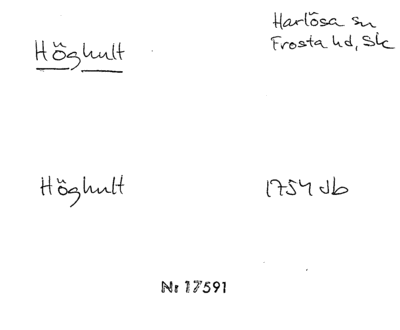 Höghult
Harlösa sn
Frosta hd, Sk
Höghult
1754 Jb
Nr 17591